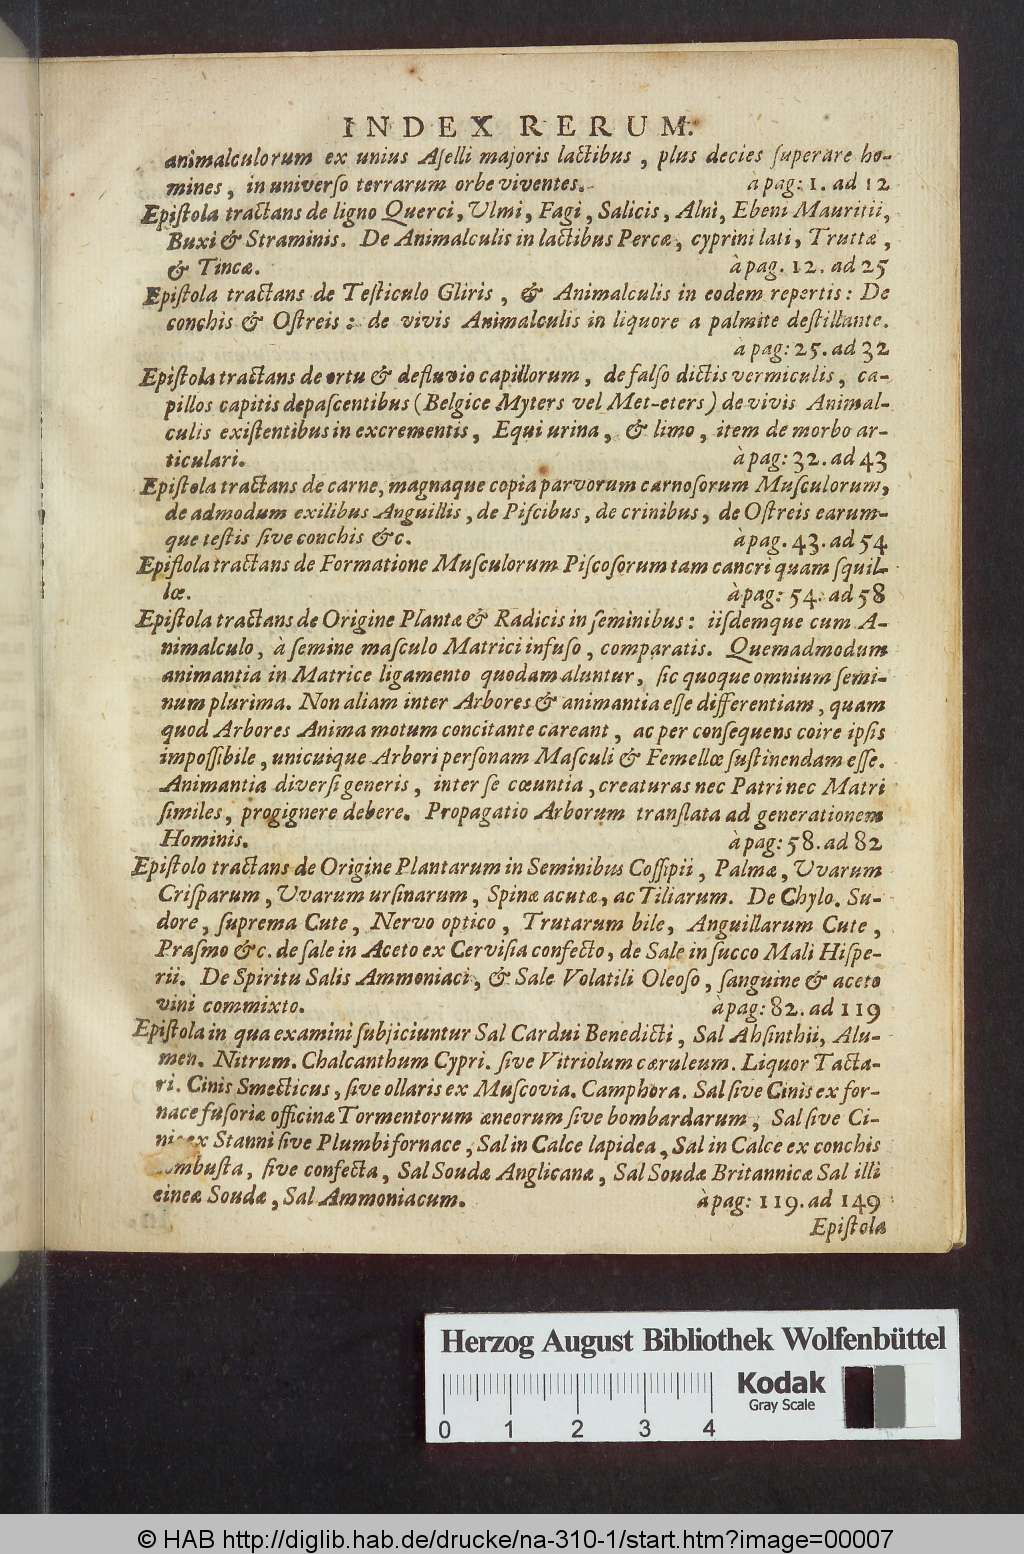 INDEX RERUM.
animalculorum ex unius Aſelli majoris lactibus, plus decies ſuperare ho-
mines, in univerſo terrarum orbe viventes. à pag: 1. ad 12
Epiſtola tractans de ligno Querci, Ulmi, Fagi, Salicis, Alni, Ebeni Mauritii,
Buxi & Straminis. De Animalculis in lactibus Percæ, cyprini lati, Truttæ,
& Tincæ. à pag. 12. ad 25
Epiſtola tractans de Teſticulo Gliris, & Animalculis in eodem repertis: De
conchis & Oſtreis: de vivis Animalculis in liquore a palmite deſtillante.
à pag: 25. ad 32
Epiſtola tractans de ortu & defluvio capillorum, de falſo dictis vermiculis, ca-
pillos capitis depaſcentibus (Belgice Myters vel Met-eters) de vivis Animal-
culis exiſtentibus in excrementis, Equi urina, & limo, item de morbo ar-
ticulari. à pag: 32. ad 43
Epiſtola tractans de carne, magnaque copia parvorum carnoſorum Muſculorum,
de admodum exilibus Anguillis, de Piſcibus, de crinibus, de Oſtreis earum-
que teſtis ſive conchis &c. à pag. 43. ad 54
Epiſtola tractans de Formatione Muſculorum Piſcoſorum tam cancri quam ſquil-
læ. à pag: 54. ad 58
Epiſtola tractans de Origine Plantæ & Radicis in ſeminibus: iiſdemque cum A-
nimalculo, à ſemine maſculo Matrici infuſo, comparatis. Quemadmodum
animantia in Matrice ligamento quodam aluntur, ſic quoque omnium ſemi-
num plurima. Non aliam inter Arbores & animantia eſſe differentiam, quam
quod Arbores Anima motum concitante careant, ac per conſequens coire ipſis
impoſſibile, unicuique Arbori perſonam Maſculi & Femellæ ſuſtinendam eſſe.
Animantia diverſi generis, inter ſe cœuntia, creaturas nec Patri nec Matri
ſimiles, progignere debere. Propagatio Arborum tranſlata ad generationem
Hominis. à pag: 58. ad 82
Epiſtolo tractans de Origine Plantarum in Seminibus Coſſipii, Palmæ, Uvarum
Criſparum, Uvarum urſinarum, Spinæ acutæ, ac Tiliarum. De Chylo. Su-
dore, ſuprema Cute, Nervo optico, Trutarum bile, Anguillarum Cute,
Praſmo &c. de ſale in Aceto ex Cerviſia confecto, de Sale in ſucco Mali Hiſpe-
rii. De Spiritu Salis Ammoniaci, & Sale Volatili Oleoſo, ſanguine & aceto
vini commixto. à pag: 82. ad 119
Epiſtola in qua examini ſubjiciuntur Sal Cardui Benedicti, Sal Abſinthii, Alu-
men. Nitrum. Chalcanthum Cypri. ſive Vitriolum cæruleum. Liquor Tacta-
ri. Cinis Smecticus, ſive ollaris ex Muſcovia. Camphora. Sal ſive Cinis ex for-
nace fuſoria officinæ Tormentorum æneorum ſive bombardarum, Sal ſive Ci-
nis ex Stanni ſive Plumbi fornace, Sal in Calce lapidea, Sal in Calce ex conchis
combuſta, ſive confecta, Sal Soudæ Anglicanæ, Sal Soudæ Britannicæ Sal illi
cineæ Soudæ, Sal Ammoniacum. à pag: 119. ad 149
Epiſtola
Herzog August Bibliothek Wolfenbüttel
Kodak
Gray Scale
0 1 2 3 4
© HAB http://diglib.hab.de/drucke/na-310-1/start.htm?image=00007